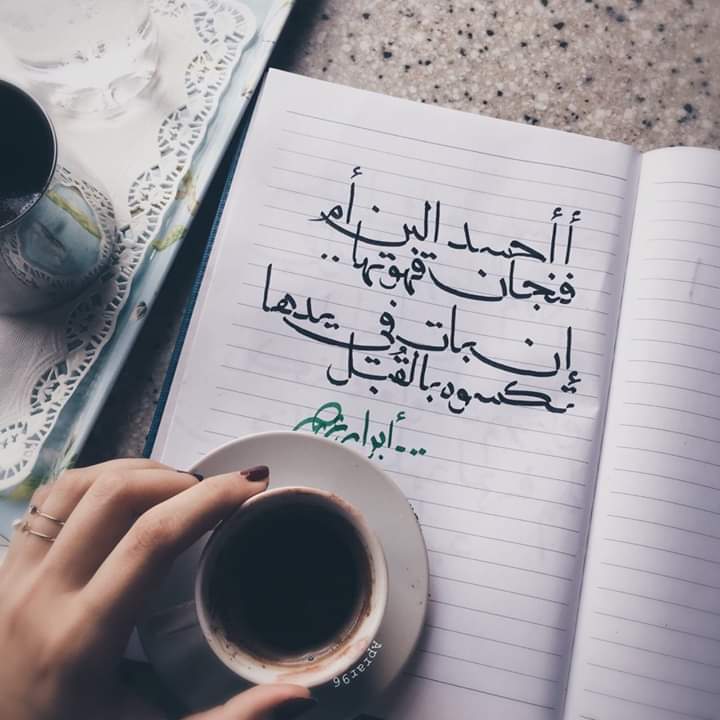 أأحسد البن أم
فنجان قهوتها..
إن بات في يدها
تكسوه بالقُبل
...أبرار
Aprar96